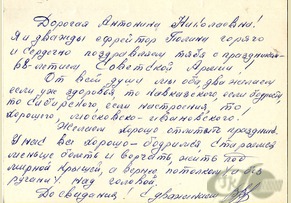 Дорогая Антонина Николаевна!
Я и дважды ефрейтор Галина горяго
и сердечно поздравляем тебя с праздником
68-летием Советской Армии
От всей души мы оба два желаем
если уж здоровья то кавказского, если бодрости
то сибирского если настроения, то
хорошего московско-ивановского!
Желаем хорошо отметить праздник.
У нас все хорошо - бодримся. Стараемся
меньше болеть и ворчать, жить под
мирной крышей, а верно потолком без
ругани над головой.
До свидания! С уважением